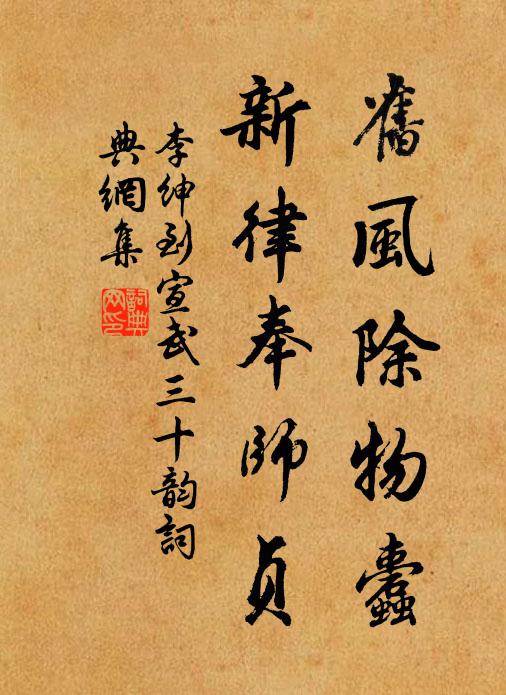 舊風除物蠹
新律奉師貞
李紳到宣武三十韵詞
典網集
詞典
网印